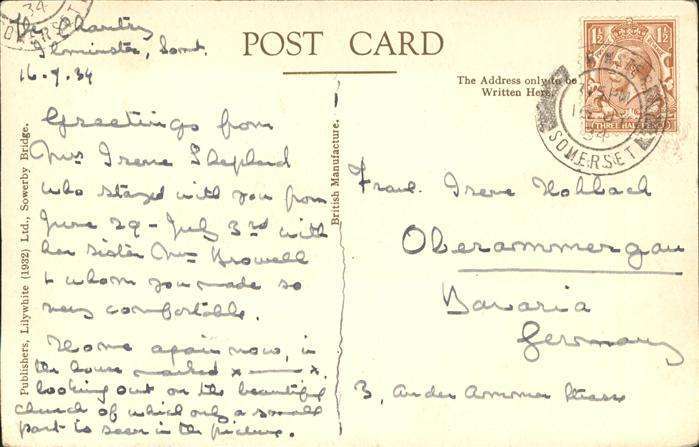 The Chantry
Ilminster, Somt.
16.7.34
POST CARD
The Address only to be
Written Here.
1½ 1½
SOMERSET
Greetings from
Mrs Irene Shepherd
who stayed with you from
June 29 - July 3rd with
her sister Mrs Browell
& whom you made so
very comfortable.
Home again now, in
the house marked x——x.
looking out on the beautiful
church of which only a small
part is seen in the picture.
Publishers, Lilywhite (1932) Ltd., Sowerby Bridge.
British Manufacture.
Frau. Irene Hohlach
Oberammergau
Bavaria
Germany
3, An der Ammer Strasse